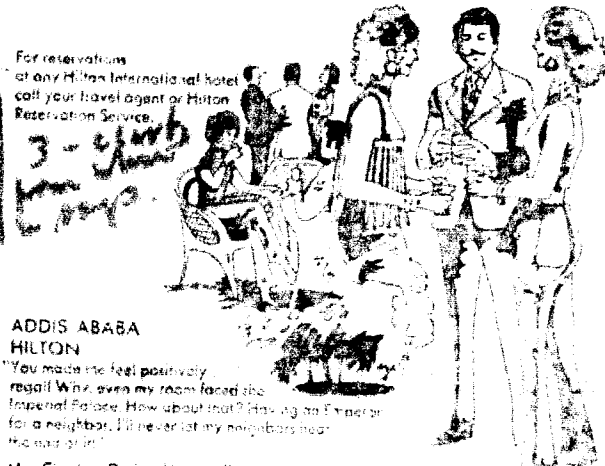 For reservations
at any Hilton International hotel
call your travel agent or Hilton
Reservation Service.
3 -
ADDIS ABABA
HILTON
"You made me feel positively
regal! Why, even my room faced the
Imperial Palace. How about that? Having an Emperor
for a neighbor. I'll never let my neighbors hear
the end of it!"